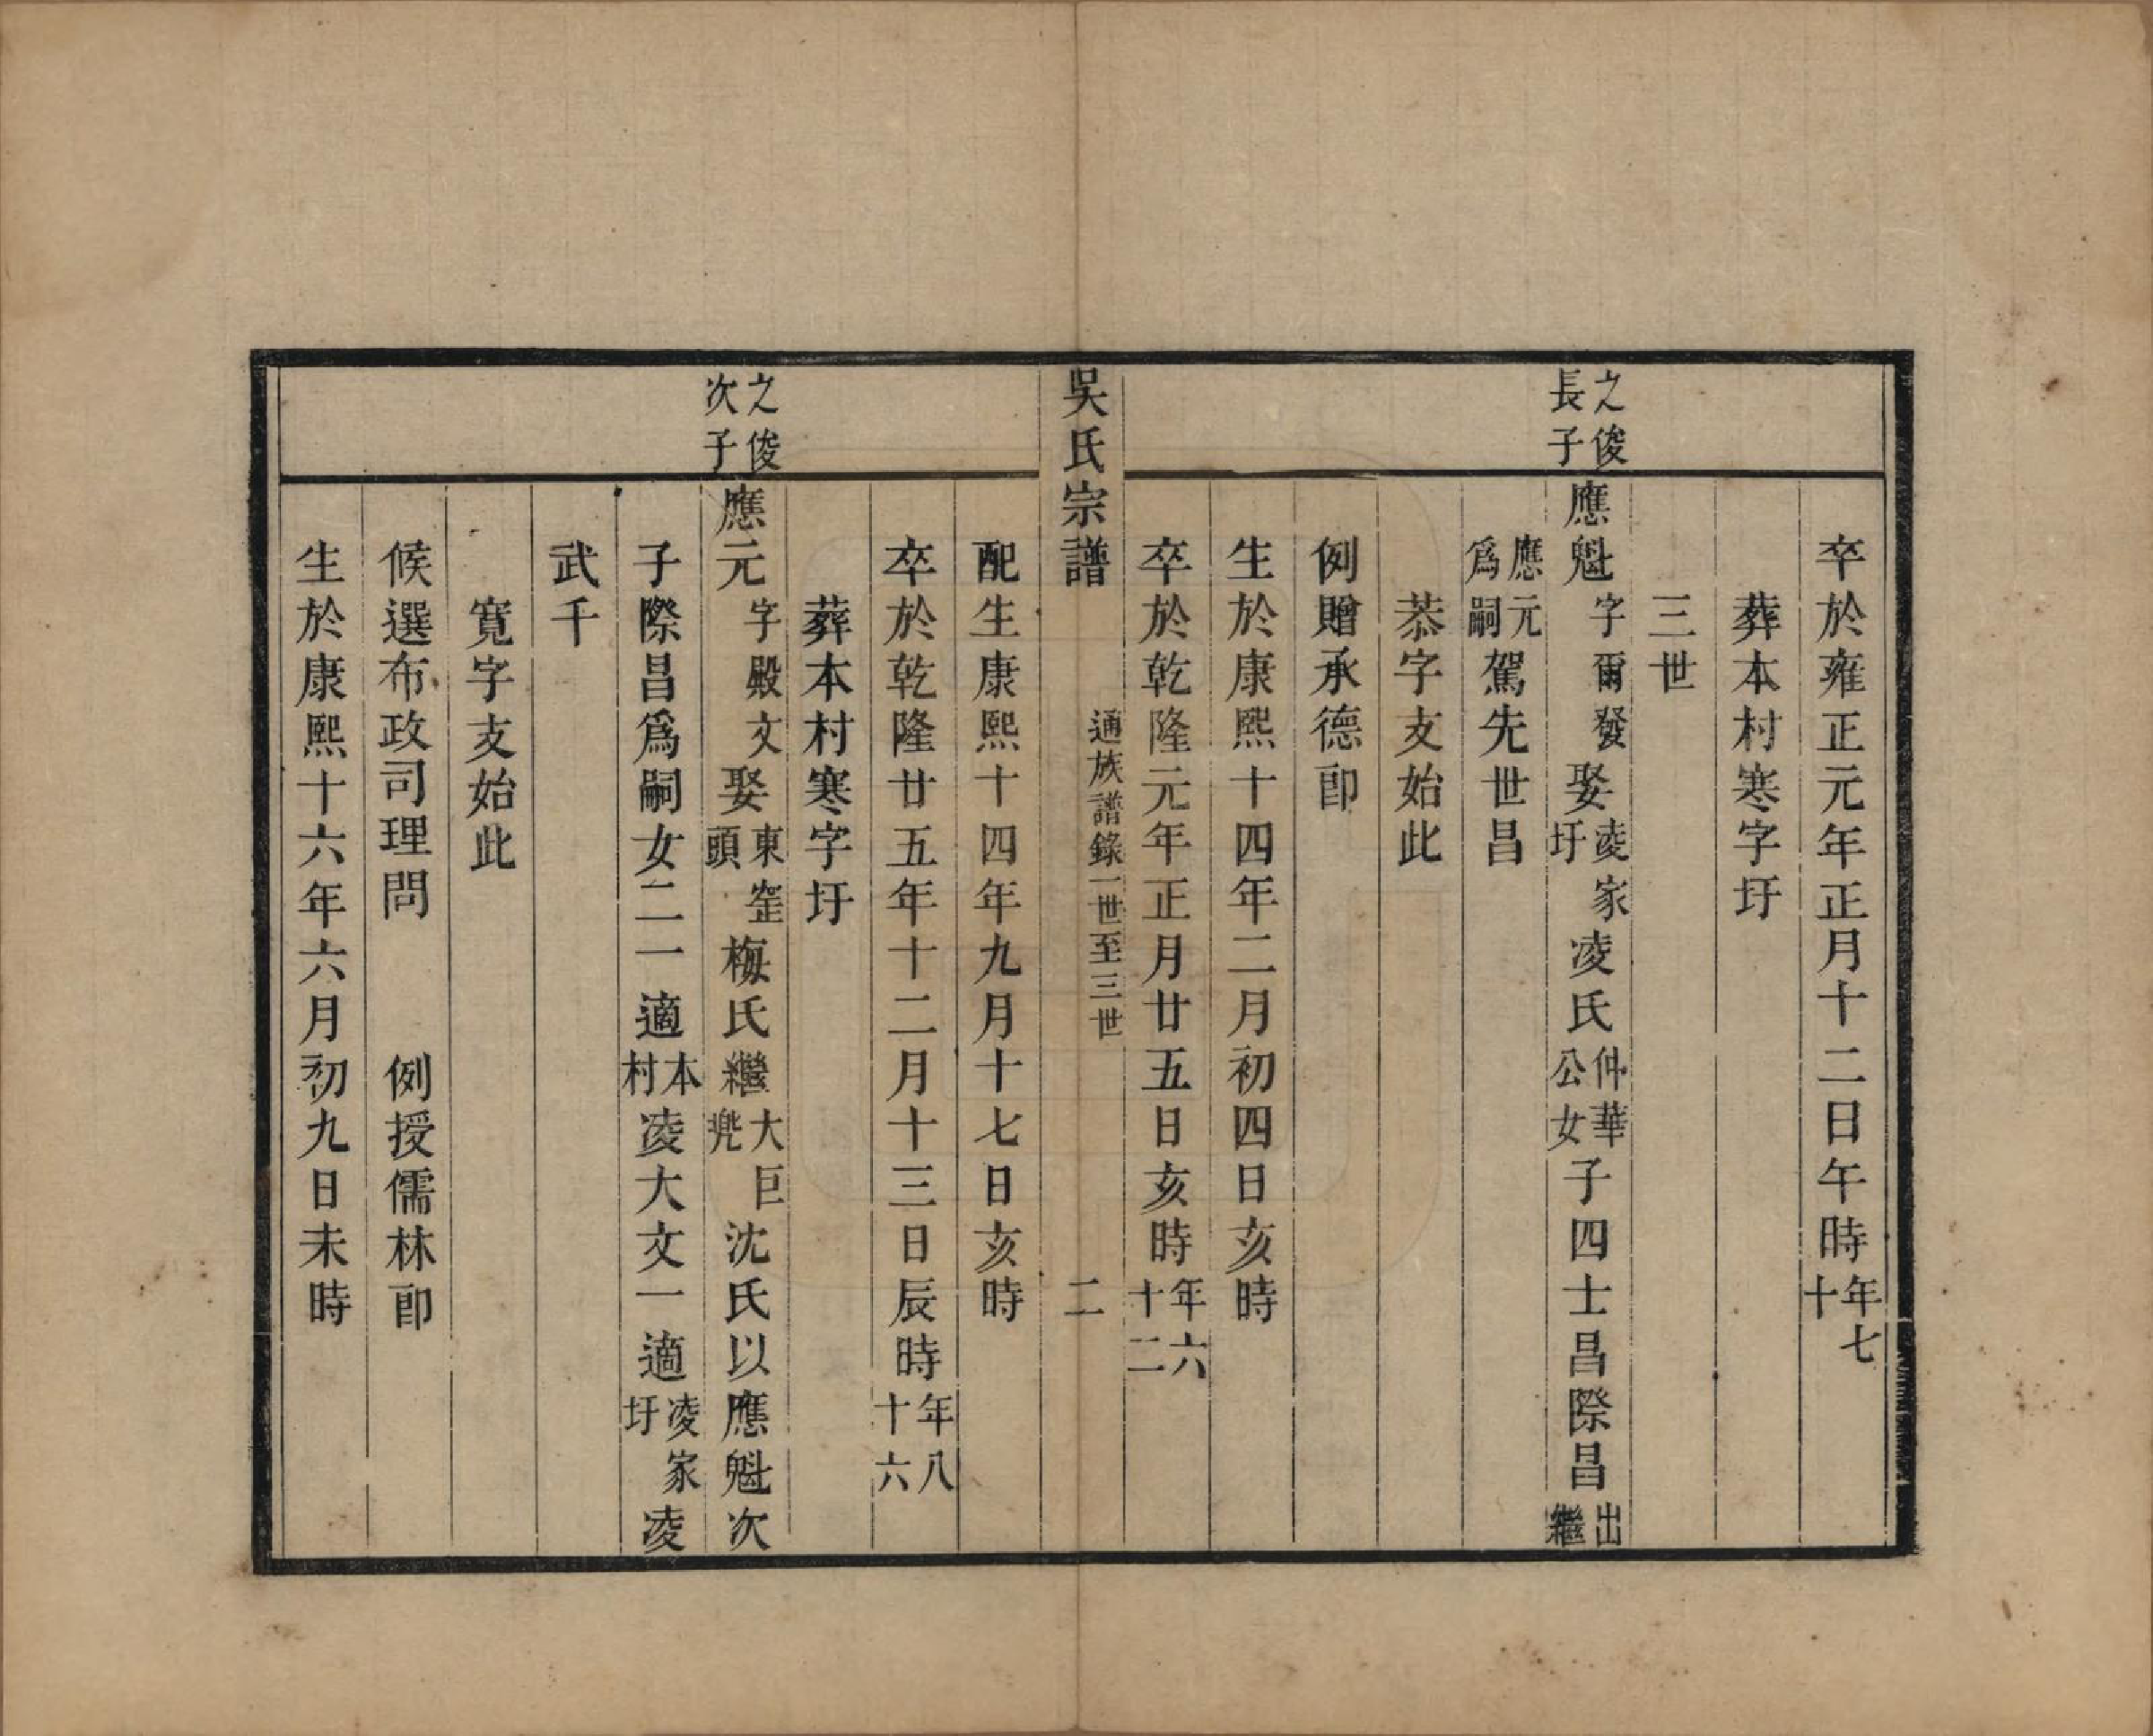 卒於雍正元年正月十二日午時年七十
葬本村寒字圩
三世
之俊長子
應魁字爾發娶凌家圩凌氏仲華公女子四士昌際昌出繼
應元爲嗣駕先世昌
恭字支始此
例贈承德郎
生於康熙十四年二月初四日亥時
卒於乾隆元年正月廿五日亥時年六十二
吳氏宗譜 通族譜錄一世至三世 二
配生康熙十四年九月十七日亥時
卒於乾隆廿五年十二月十三日辰時年八十六
葬本村寒字圩
之俊次子
應元字殿文娶東窰頭梅氏繼大巨兜沈氏以應魁次
子際昌爲嗣女二一適本村凌大文一適凌家圩凌
武千
寬字支始此
候選布政司理問 例授儒林郎
生於康熙十六年六月初九日未時